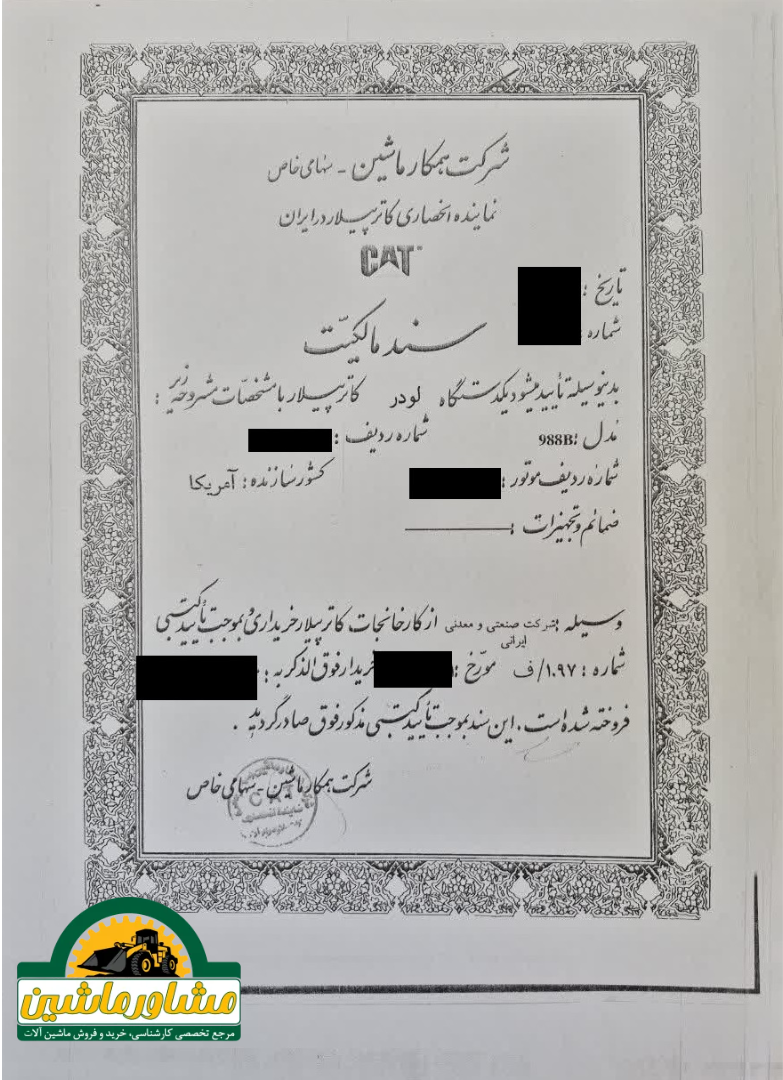 شرکت همکار ماشین - سهامی خاص
نماینده انحصاری کاترپیلار در ایران
CAT
تاریخ :
شماره :
سند مالکیت
بدینوسیله تأیید میشود یکدستگاه لودر کاترپیلار با مشخصات مشروحه زیر :
مدل : 988B شماره ردیف :
شماره ردیف موتور : کشور سازنده : آمریکا
ضمائم و تجهیزات :
وسیله : شرکت صنعتی و معدنی ایرانی از کارخانجات کاترپیلار خریداری و بموجب تأیید کتبی
شماره : ۱۰۹۷/ف مورخ : خریدار فوق الذکر به :
فروخته شده است . این سند بموجب تأیید کتبی مذکور فوق صادر گردید .
شرکت همکار ماشین - سهامی خاص
CAT
مشاور ماشین
مرجع تخصصی کارشناسی، خرید و فروش ماشین آلات